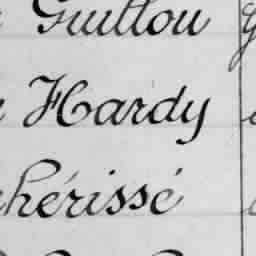 Guillou
Hardy
hérissé